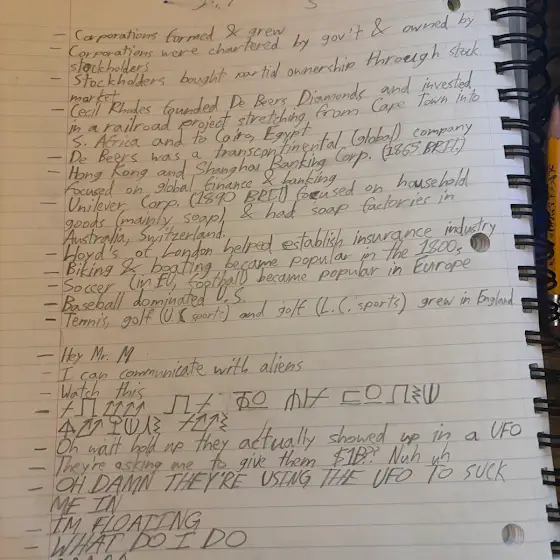 - Corporations formed & grew
- Corporations were chartered by gov't & owned by
stockholders
- Stockholders bought partial ownership through stock
market
- Cecil Rhodes founded De Beers Diamonds and invested
in a railroad project stretching from Cape Town into
S. Africa and to Cairo, Egypt
- De Beers was a transcontinental (global) company
- Hong Kong and Shanghai Banking Corp. (1865 BRIT.)
focused on global finance & banking
- Unilever Corp. (1890 BRIT) focused on household
goods (mainly soap) & had soap factories in
Australia, Switzerland.
- Lloyd's of London helped establish insurance industry
- Biking & boating became popular in the 1800s
- Soccer (in EU, football) became popular in Europe
- Baseball dominated U.S.
- Tennis, golf (U.C sports) and golf (L.C. sports) grew in England
- Hey Mr. M
- I can communicate with aliens
- Watch this
- Oh wait hold up they actually showed up in a UFO
- They're asking me to give them $1B?? Nuh uh
- OH DAMN THEY'RE USING THE UFO TO SUCK
ME IN
- I'M FLOATING
- WHAT DO I DO